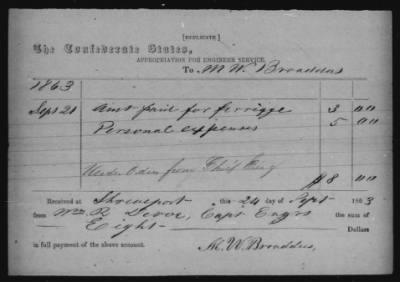 [DUPLICATE]
The Confederate States,
APPROPRIATION FOR ENGINEER SERVICE.
To M. W. Broaddus
1863
Sept 21 Amt paid for ferriage 3 00
Personal expenses 5 00
Under Orders from Chief Eng
$8 00
Received at Shreveport this 24 day of Sept 1863
from Wm R Devoe, Capt Engrs the sum of
Eight Dollars
in full payment of the above account.
M. W. Broaddus,